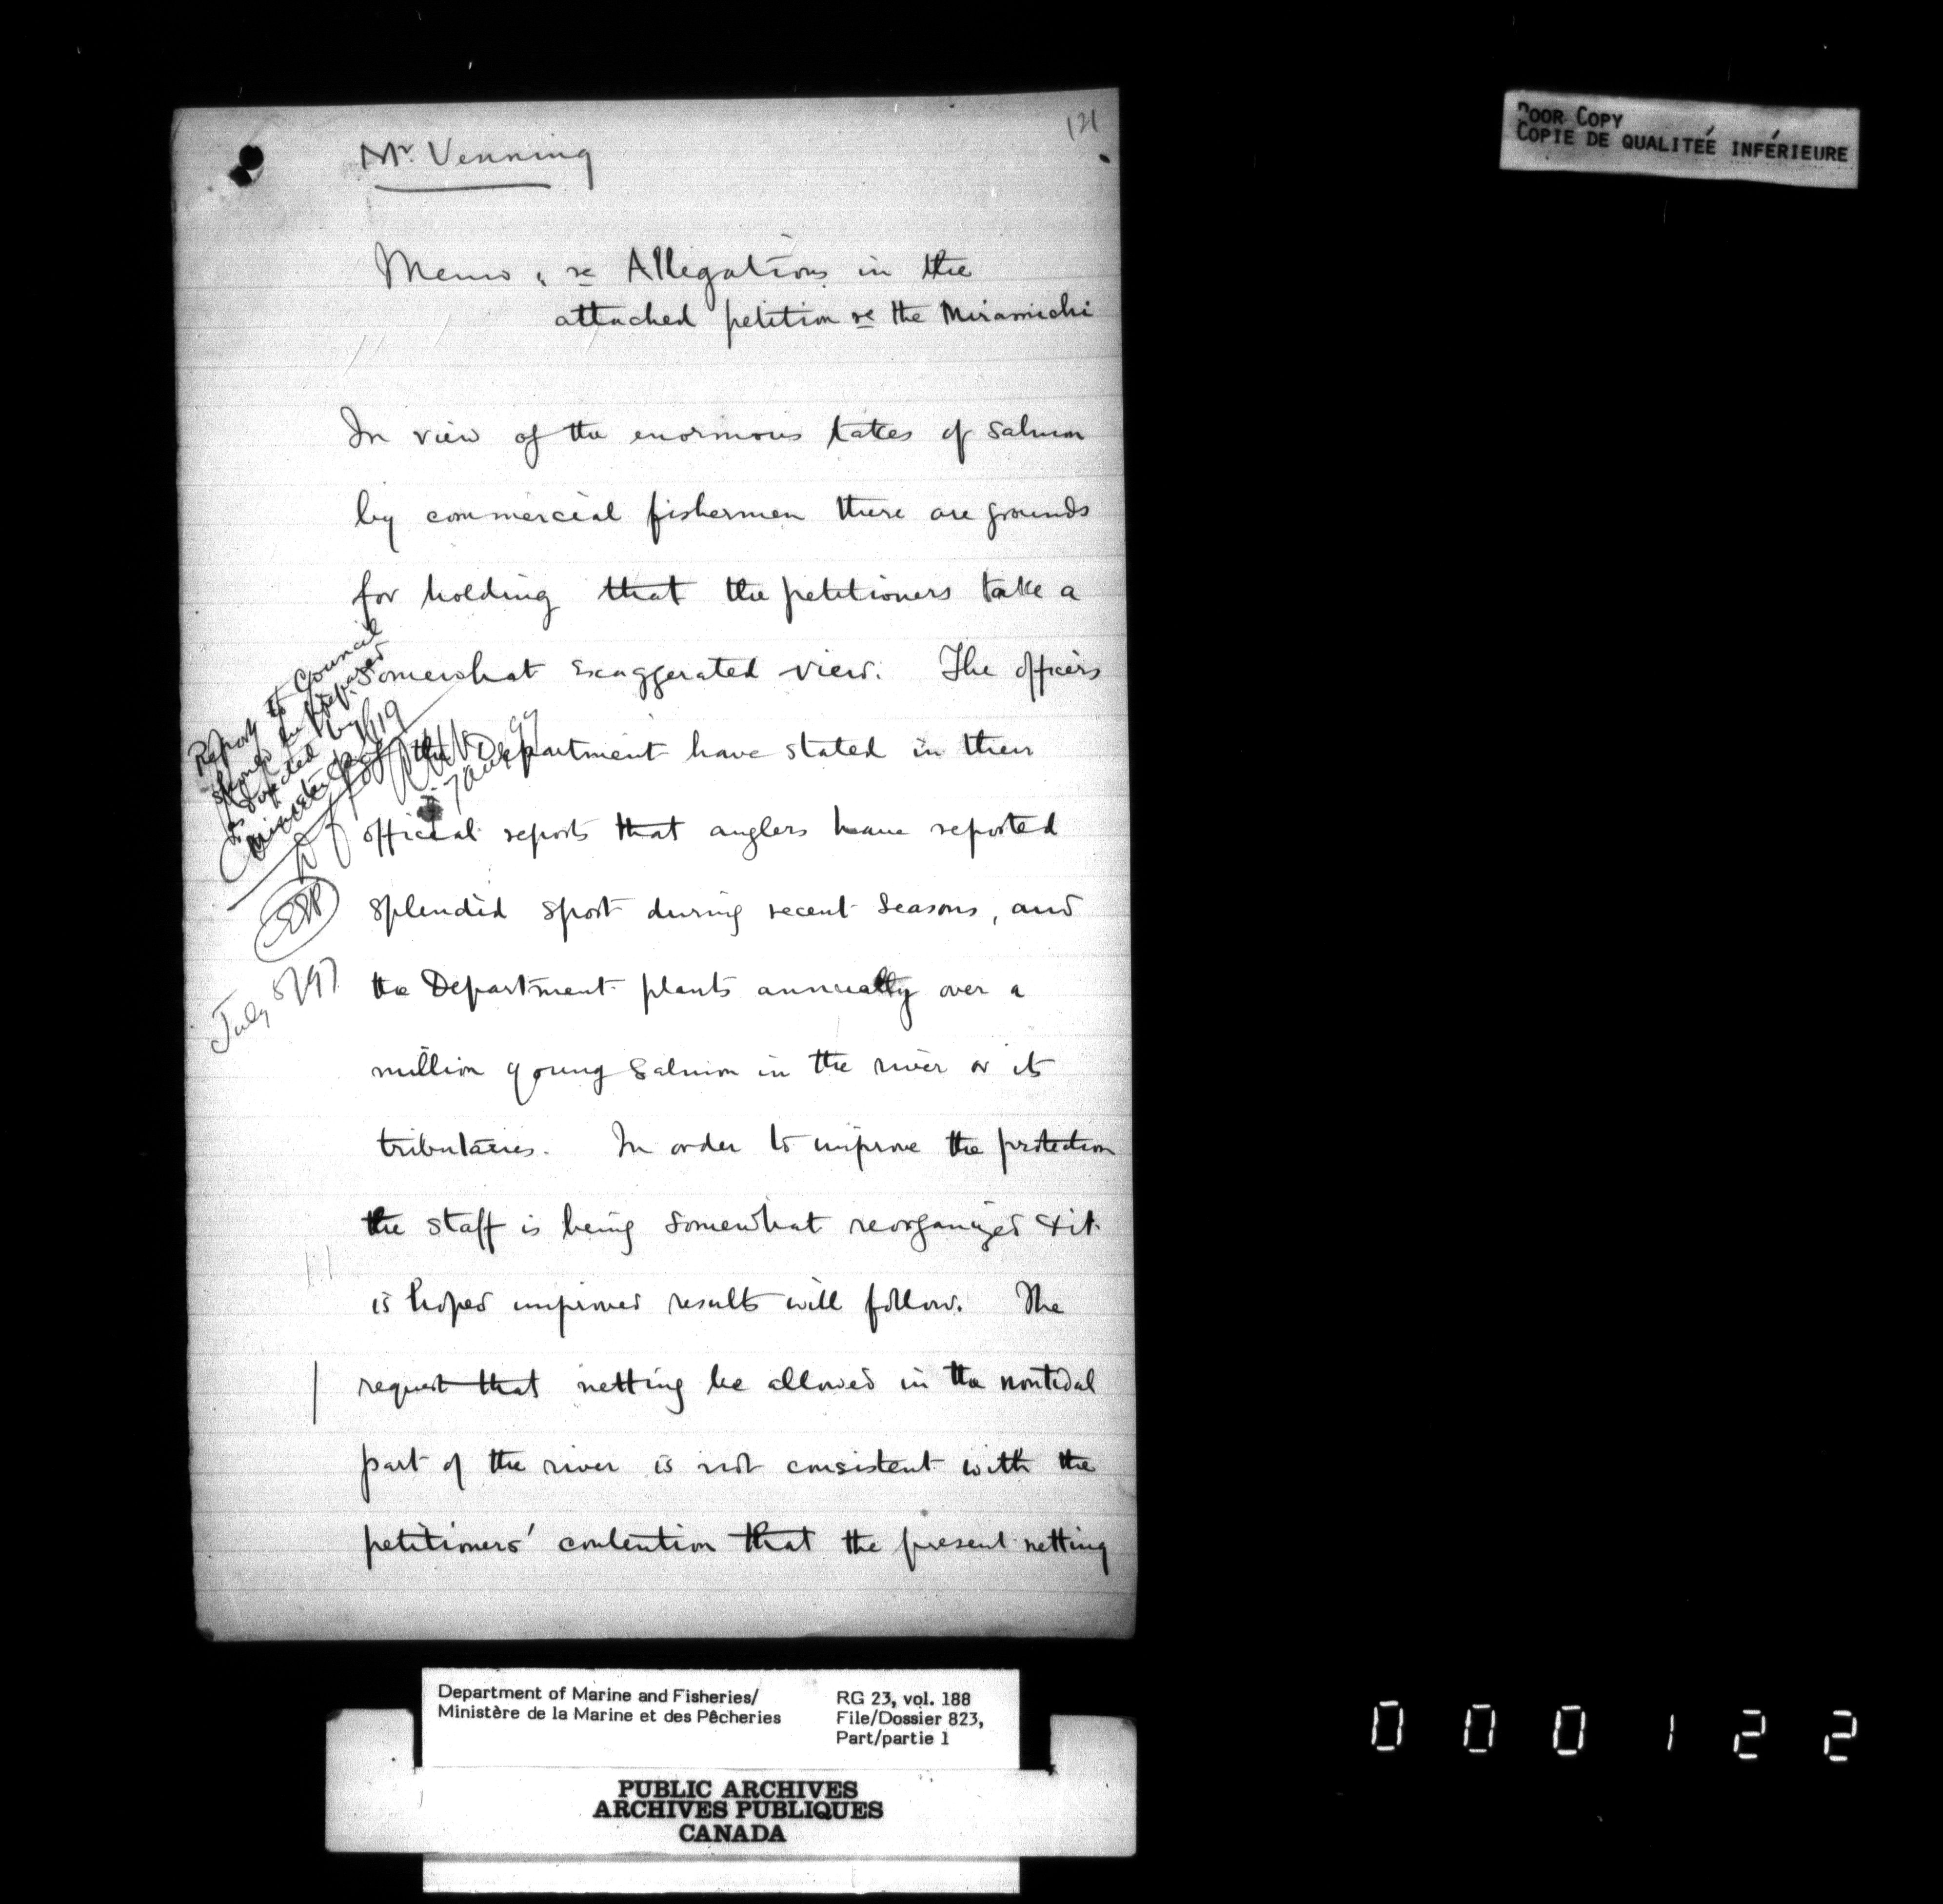 121
POOR COPY
COPIE DE QUALITEÉ INFÉRIEURE
Mr. Venning
Memo, re Allegations in the
attached petition re the Miramichi
In view of the enormous takes of salmon
by commercial fishermen there are grounds
for holding that the petitioners take a
somewhat exaggerated view. The officers
of the Department have stated in their
official reports that anglers have reported
splendid sport during recent seasons, and
the Department plants annually over a
million young salmon in the river or its
tributaries. In order to improve the protection
the staff is being somewhat reorganized & it
is hoped improved results will follow. The
request that netting be allowed in the nontidal
part of the river is not consistent with the
petitioners' contention that the present netting
Report to Council
should be prepared
as directed by
Minister
EEP
July 8/97
Department of Marine and Fisheries/
Ministère de la Marine et des Pêcheries
RG 23, vol. 188
File/Dossier 823,
Part/partie 1
PUBLIC ARCHIVES
ARCHIVES PUBLIQUES
CANADA
000122